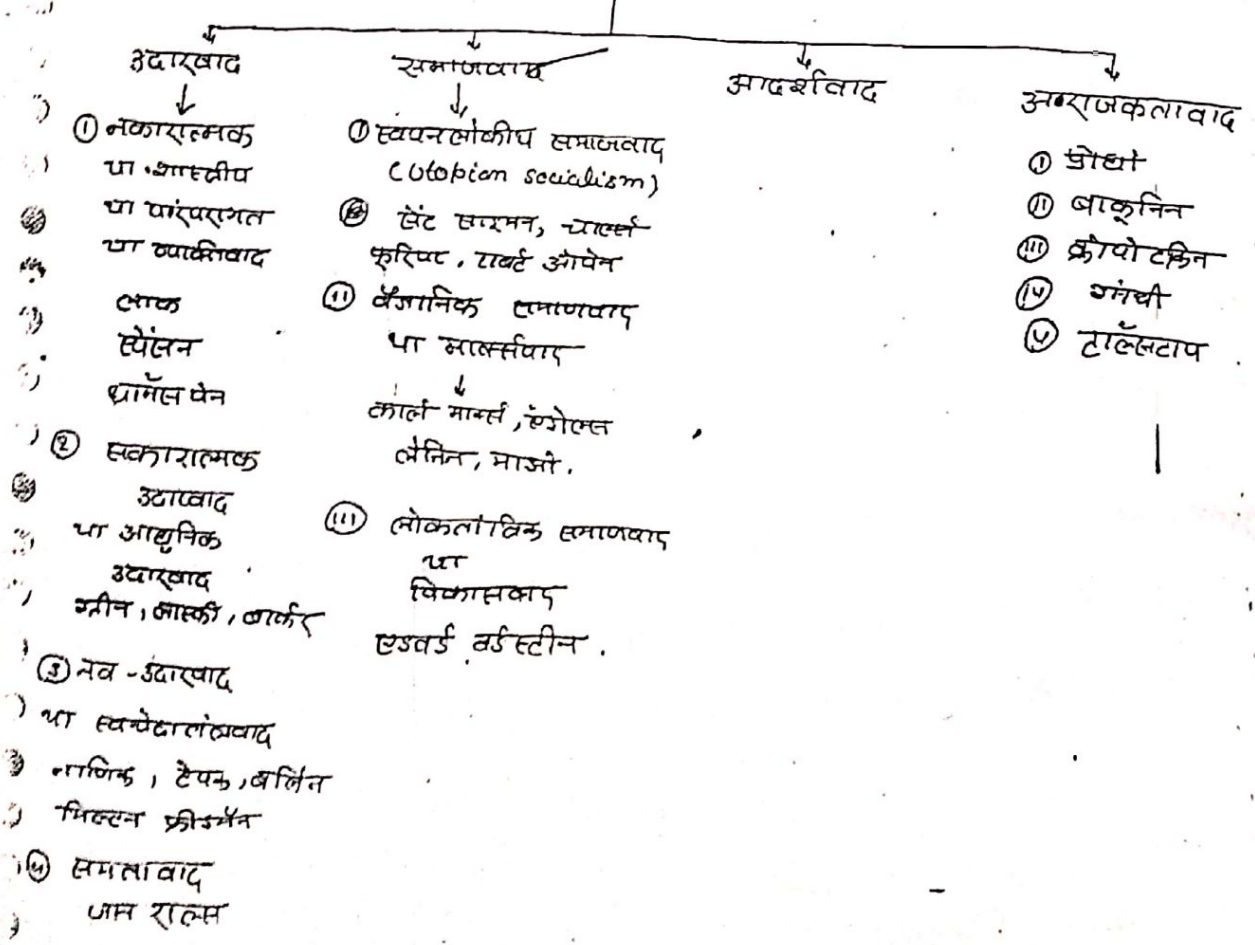 उदारवाद
① नकारात्मक
या शास्त्रीय
या पारंपरागत
या व्यक्तिवाद
लाक
स्पेंसन
थॉमॅस पेन
② सकारात्मक
उदारवाद
या आधुनिक
उदारवाद
ग्रीन, लास्की, बार्कर
③ नव-उदारवाद
या स्वेच्छातंत्रवाद
नाजिक, हेयक, बर्लिन
मिल्टन फ्रीडमैन
④ समतावाद
जान राल्स
समाजवाद
① स्वपनलोकीय समाजवाद
(Utopian socialism)
सेंट साइमन, चार्ल्स
फूरियर, राबर्ट ओवेन
(II) वैज्ञानिक समाजवाद
या मार्क्सवाद
कार्ल मार्क्स, एंगेल्स
लेनिन, माओ.
(III) लोकतांत्रिक समाजवाद
या
विकासवाद
एडवर्ड बर्डस्टीन.
आदर्शवाद
अराजकतावाद
(I) प्रोधों
(II) बाकूनिन
(III) क्रोपोटकिन
(IV) गांधी
(V) टालॅस्टाय